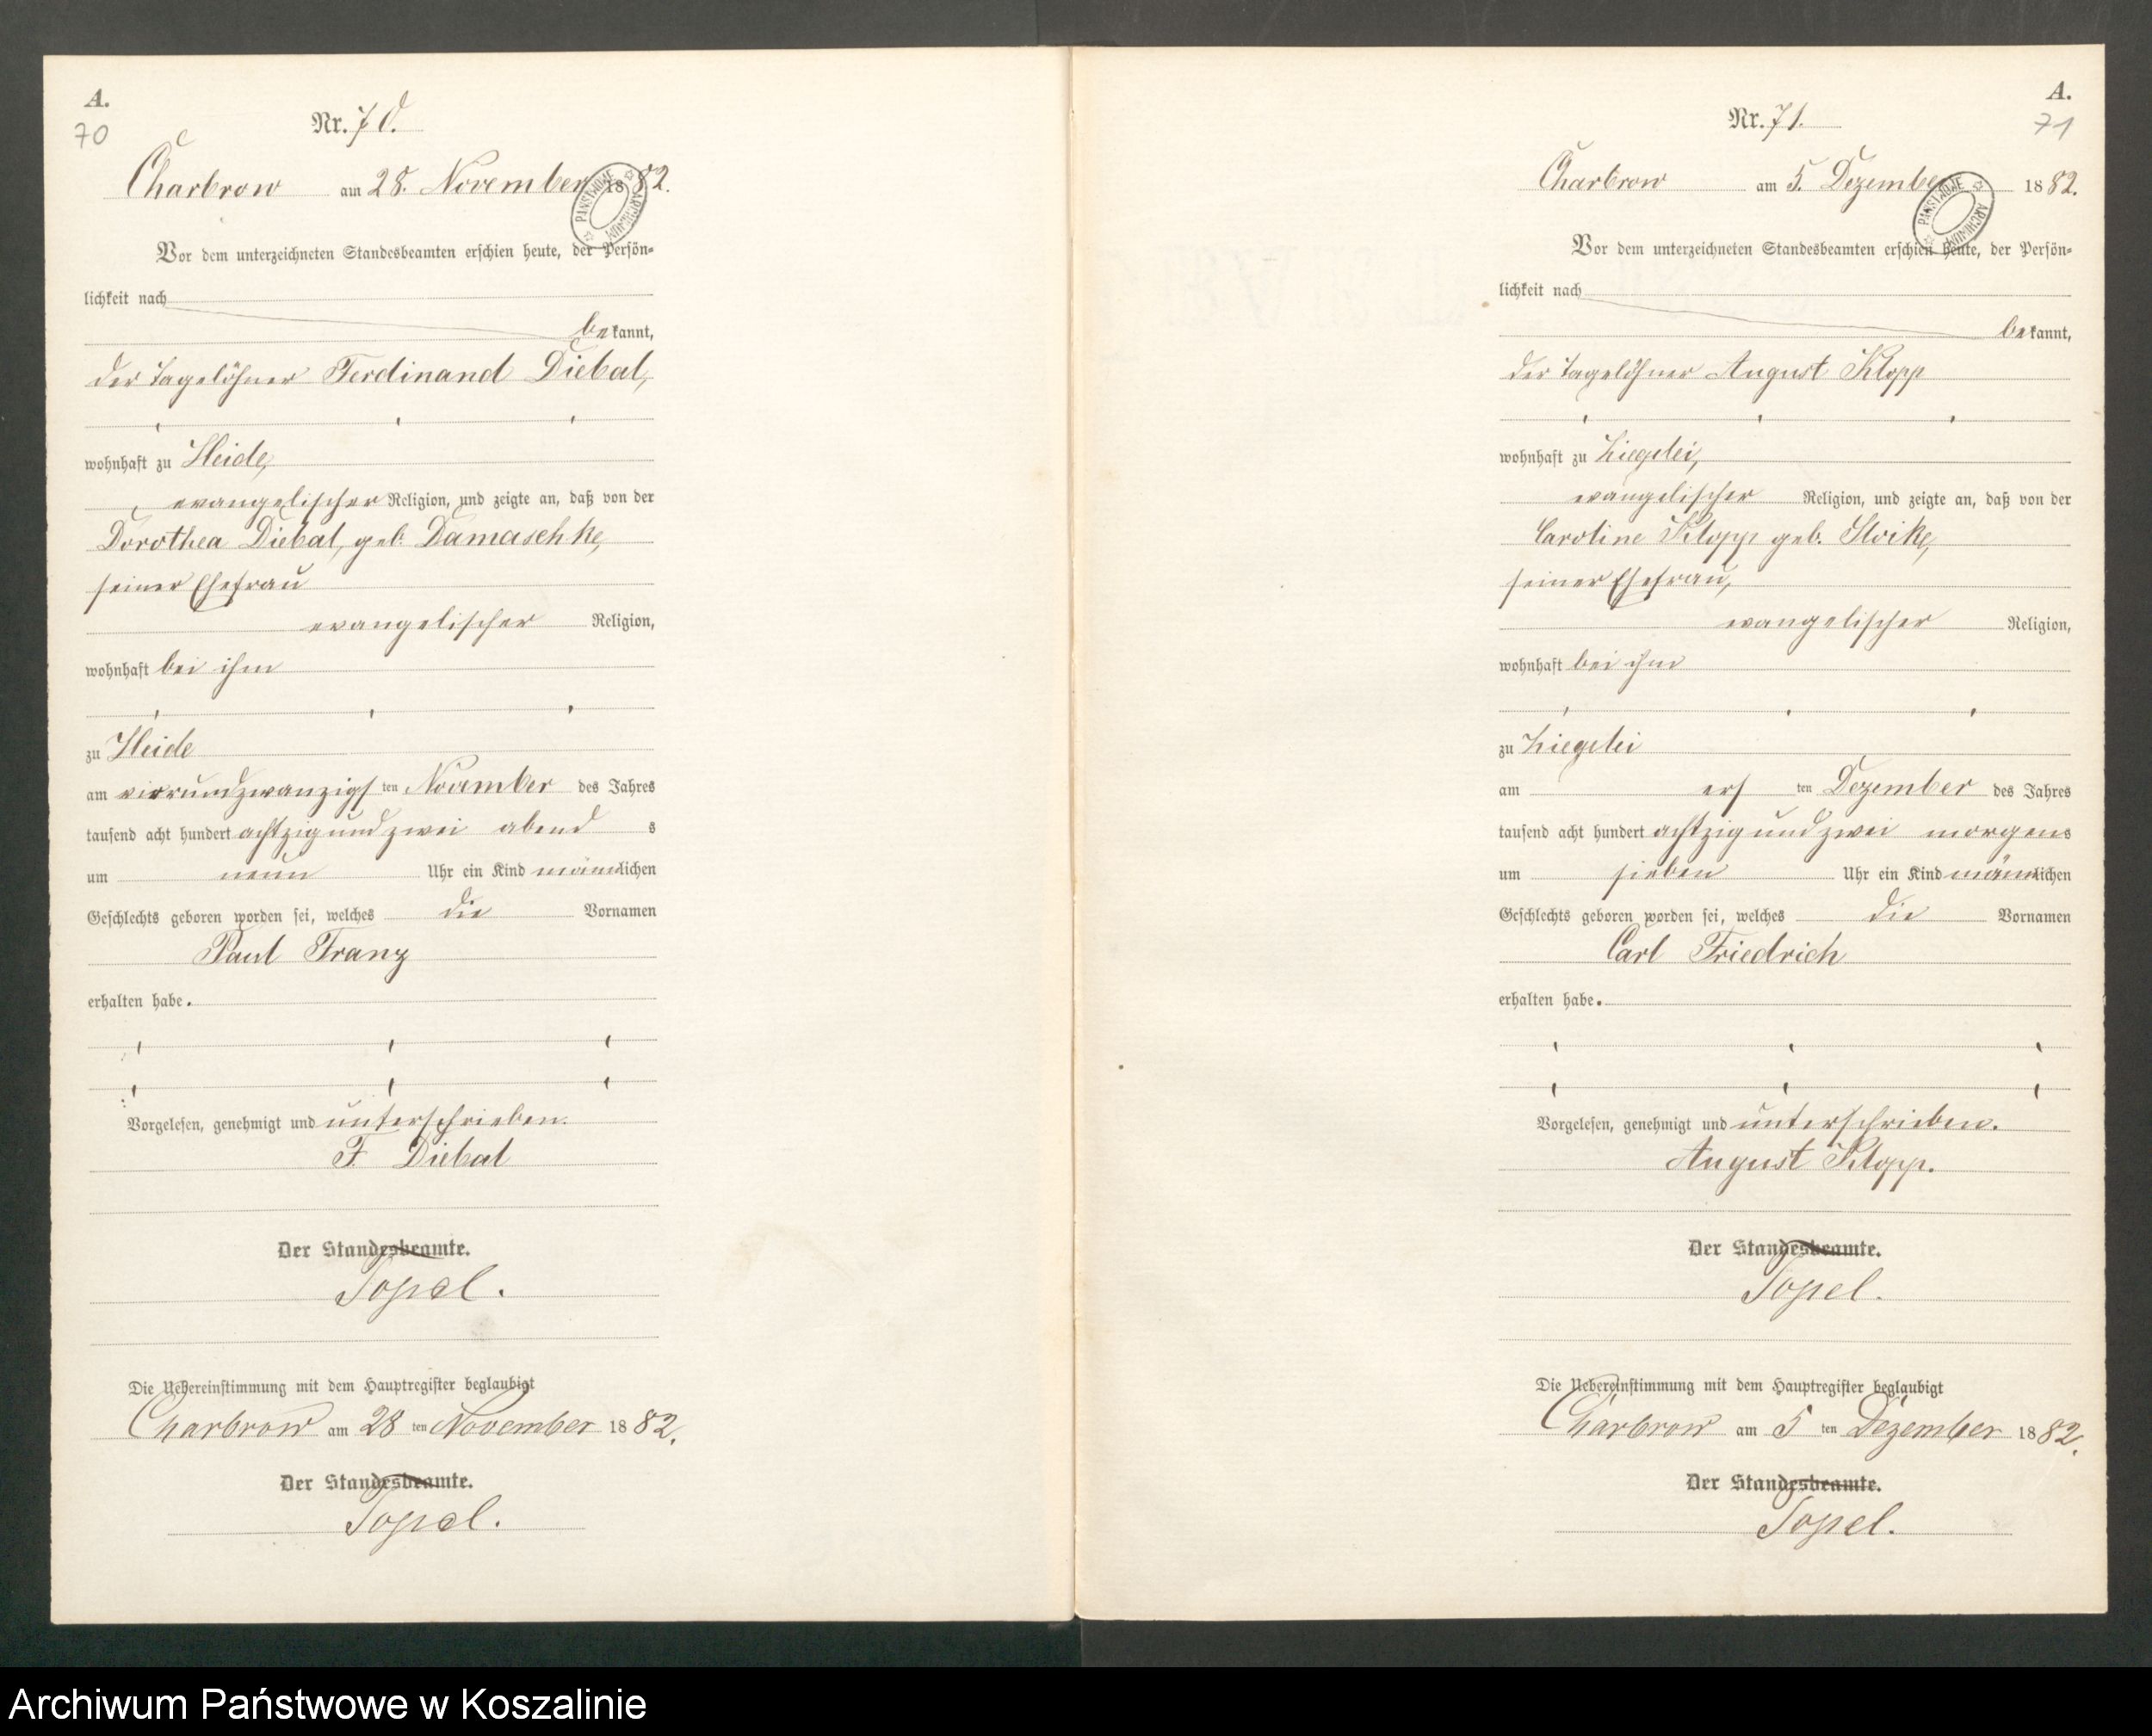 A.
70
Nr. 70.
Charbrow am 28. November 1882.
PAŃSTWOWE ARCHIWUM
Vor dem unterzeichneten Standesbeamten erschien heute, der Persön-
lichkeit nach
bekannt,
der Tagelöhner Ferdinand Diebal,
wohnhaft zu Heide,
evangelischer Religion, und zeigte an, daß von der
Dorothea Diebal, geb. Damaschke,
seiner Ehefrau
evangelischer Religion,
wohnhaft bei ihm
zu Heide
am vierundzwanzigsten November des Jahres
tausend acht hundert achtzig und zwei abends
um neun Uhr ein Kind männlichen
Geschlechts geboren worden sei, welches die Vornamen
Paul Franz
erhalten habe.
Vorgelesen, genehmigt und unterschrieben.
F. Diebal
Der Standesbeamte.
Topel.
Die Uebereinstimmung mit dem Hauptregister beglaubigt
Charbrow am 28 ten November 1882.
Der Standesbeamte.
Topel.
A.
71
Nr. 71.
Charbrow am 5. Dezember 1882.
PAŃSTWOWE ARCHIWUM
Vor dem unterzeichneten Standesbeamten erschien heute, der Persön-
lichkeit nach
bekannt,
der Tagelöhner August Klopp
wohnhaft zu Ziegelei,
evangelischer Religion, und zeigte an, daß von der
Caroline Klopp geb. Stoike,
seiner Ehefrau,
evangelischer Religion,
wohnhaft bei ihm
zu Ziegelei
am ersten Dezember des Jahres
tausend acht hundert achtzig und zwei morgens
um sieben Uhr ein Kind männlichen
Geschlechts geboren worden sei, welches die Vornamen
Carl Friedrich
erhalten habe.
Vorgelesen, genehmigt und unterschrieben.
August Klopp.
Der Standesbeamte.
Topel.
Die Uebereinstimmung mit dem Hauptregister beglaubigt
Charbrow am 5 ten Dezember 1882.
Der Standesbeamte.
Topel.
Archiwum Państwowe w Koszalinie